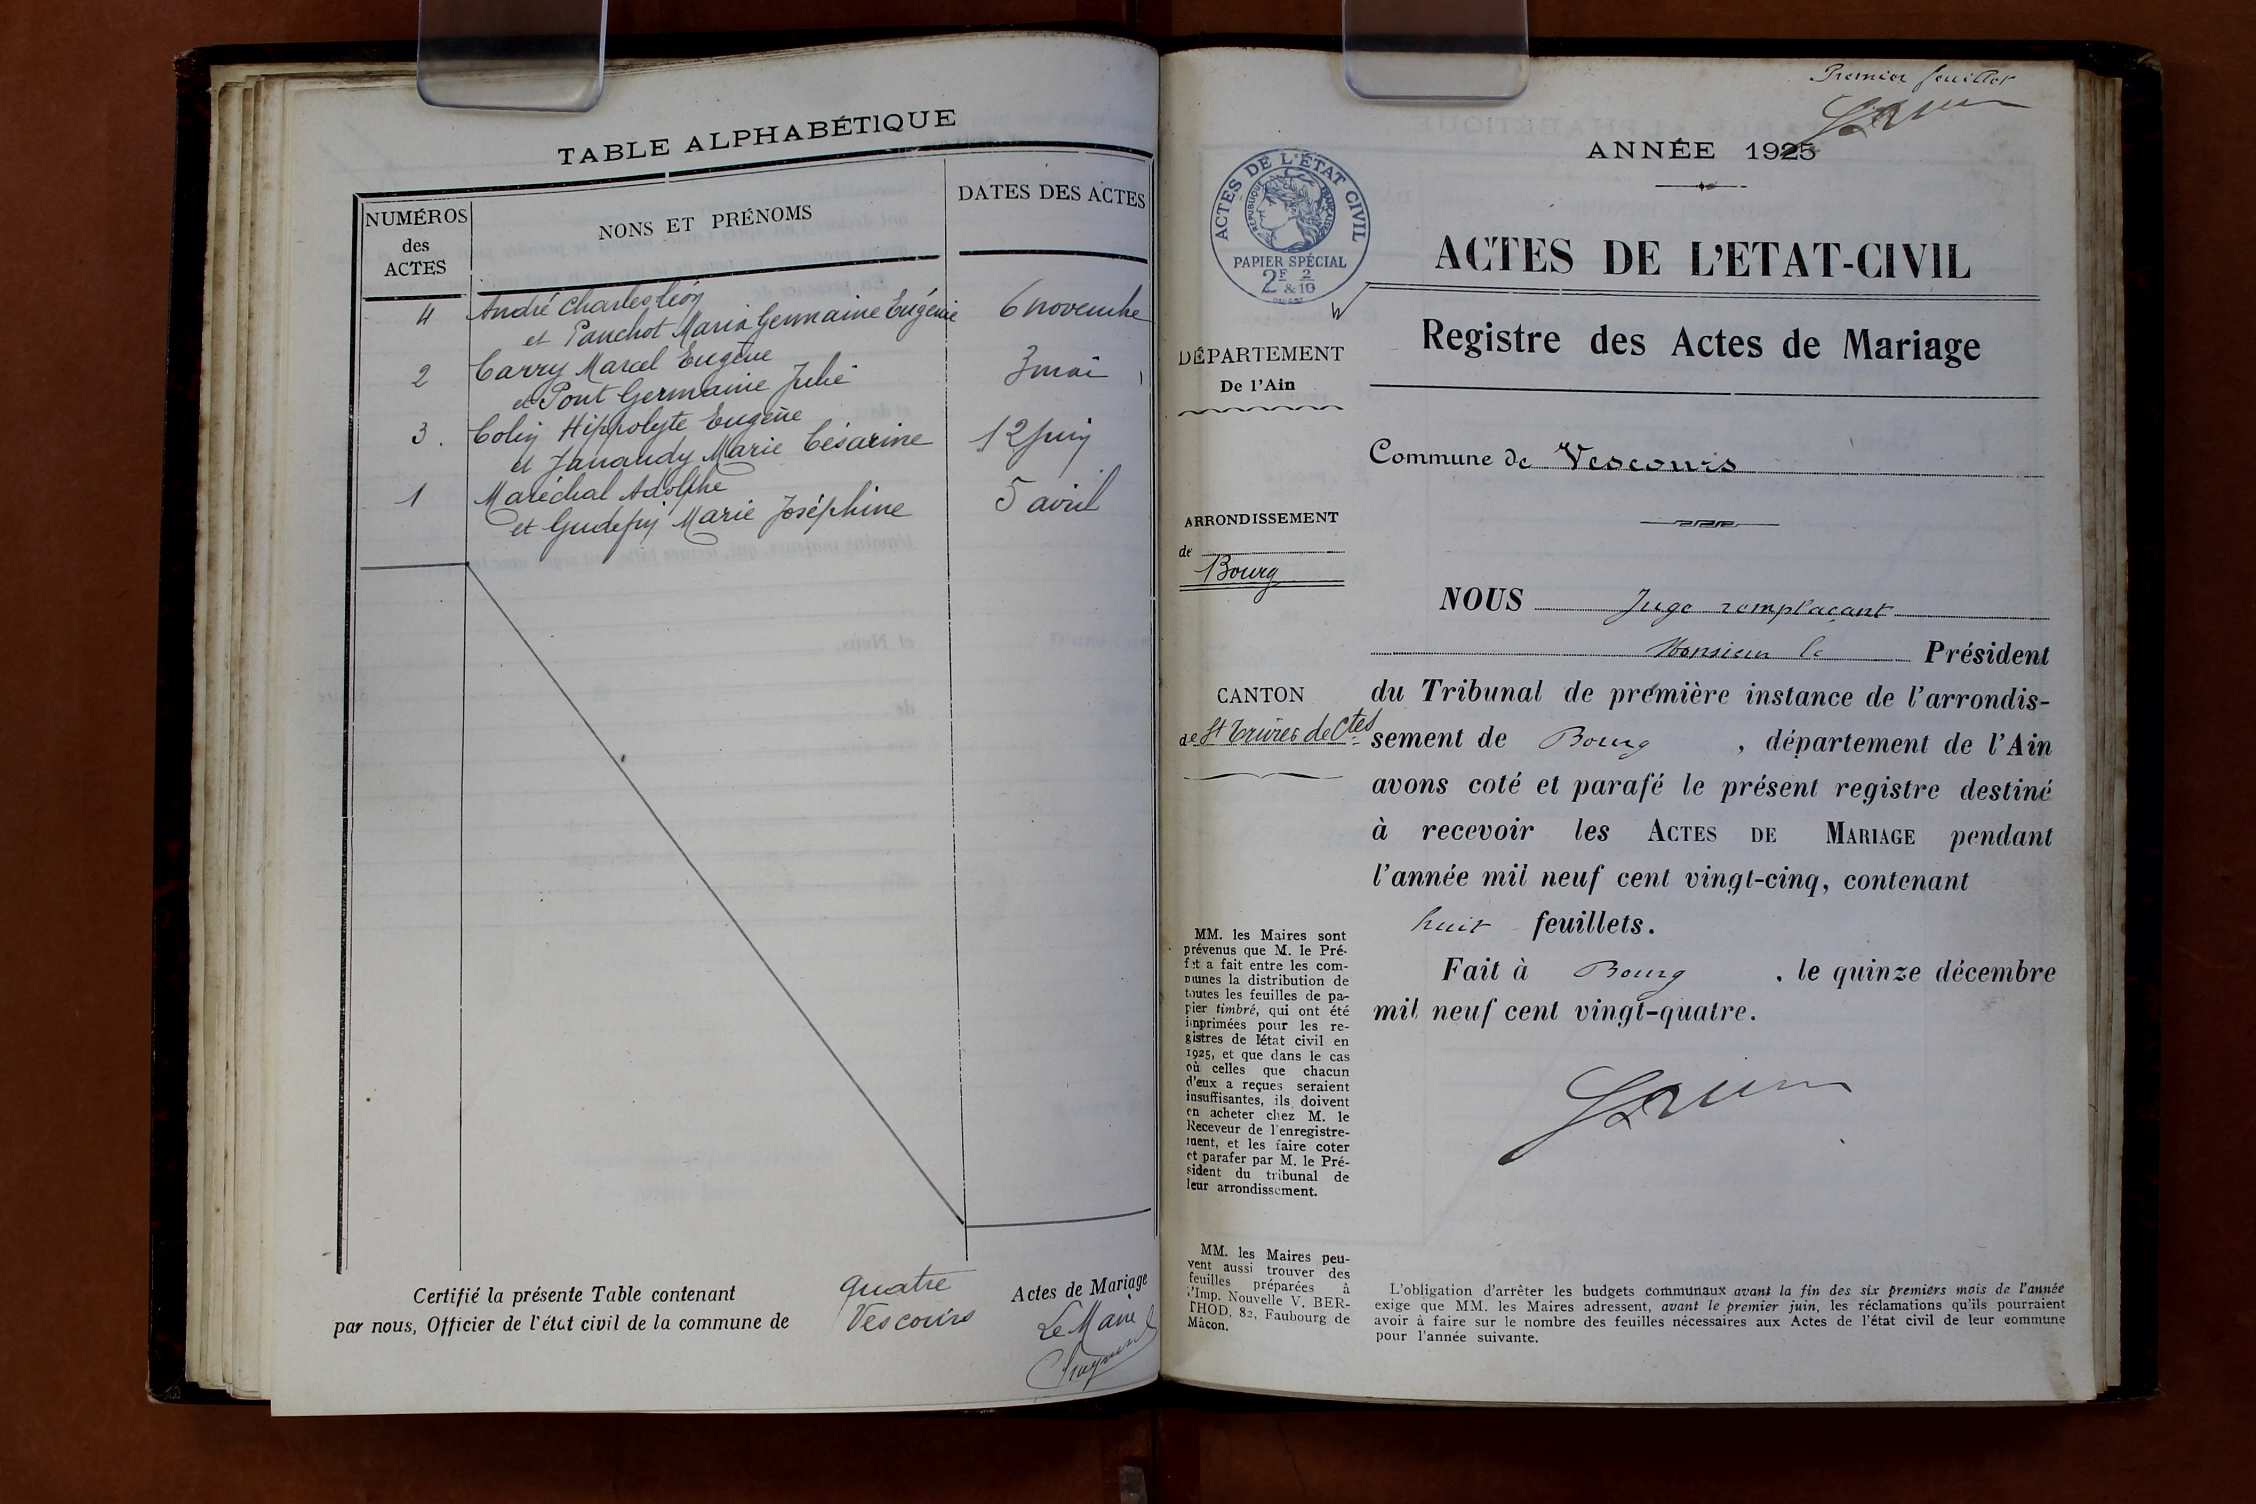 TABLE ALPHABÉTIQUE
NUMÉROS
des
ACTES
NONS ET PRÉNOMS
DATES DES ACTES
4 André Charles Léon
et Panchot Maria Germaine Eugénie 6 novembre
2 Carry Marcel Eugène
et Pont Germaine Julie 3 mai
3. Colin Hippolyte Eugène
et Janaudy Marie Césarine 12 juin
1 Maréchal Adolphe
et Gudefin Marie Joséphine 5 avril
Certifié la présente Table contenant quatre Actes de Mariage
par nous, Officier de l'état civil de la commune de Vescours
Le Maire
Premier feuillet
ANNÉE 1925
ACTES DE L'ÉTAT CIVIL
RÉPUBLIQUE FRANÇAISE
PAPIER SPÉCIAL
2F 2/10
&
ACTES DE L'ETAT-CIVIL
Registre des Actes de Mariage
DÉPARTEMENT
De l'Ain
Commune de Vescours
ARRONDISSEMENT
de
Bourg
CANTON
de St Trivier de Ctes
NOUS Juge remplaçant
Monsieur le Président
du Tribunal de première instance de l'arrondis-
sement de Bourg , département de l'Ain
avons coté et parafé le présent registre destiné
à recevoir les ACTES DE MARIAGE pendant
l'année mil neuf cent vingt-cinq, contenant
huit feuillets.
Fait à Bourg , le quinze décembre
mil neuf cent vingt-quatre.
MM. les Maires sont
prévenus que M. le Pré-
fet a fait entre les com-
munes la distribution de
toutes les feuilles de pa-
pier timbré, qui ont été
imprimées pour les re-
gistres de l'état civil en
1925, et que dans le cas
où celles que chacun
d'eux a reçues seraient
insuffisantes, ils doivent
en acheter chez M. le
Receveur de l'enregistre-
ment, et les faire coter
et parafer par M. le Pré-
sident du tribunal de
leur arrondissement.
MM. les Maires peu-
vent aussi trouver des
feuilles préparées à
l'Imp. Nouvelle V. BER-
THOD, 82, Faubourg de
Mâcon.
L'obligation d'arrêter les budgets communaux avant la fin des six premiers mois de l'année
exige que MM. les Maires adressent, avant le premier juin, les réclamations qu'ils pourraient
avoir à faire sur le nombre des feuilles nécessaires aux Actes de l'état civil de leur commune
pour l'année suivante.